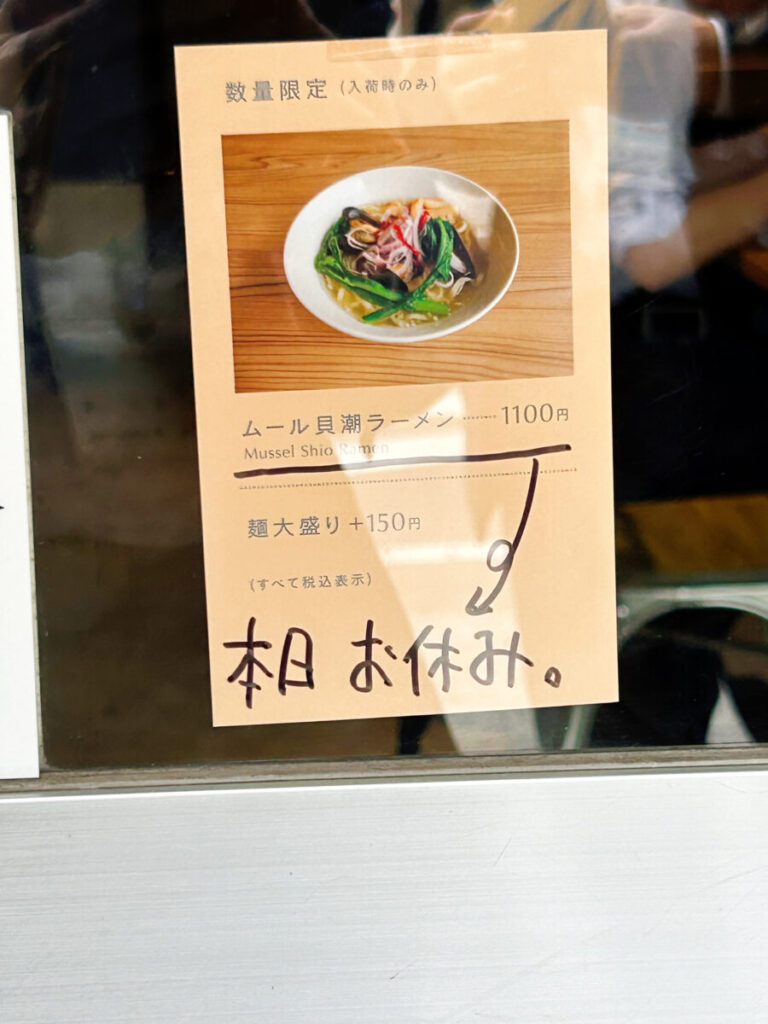 数量限定 (入荷時のみ)
ムール貝潮ラーメン ……… 1100円
Mussel Shio Ramen
麺大盛り +150円
(すべて税込表示)
本日 お休み。